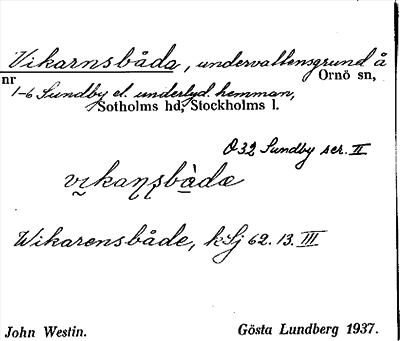 Vikarnsbåda, undervattensgrund å
nr Ornö sn,
1-6 Sundby el. underlyd. hemman,
Sotholms hd, Stockholms l.
Ö32 Sundby ser. II
Wikarensbåde, kSj 62. 13. III
John Westin. Gösta Lundberg 1937.